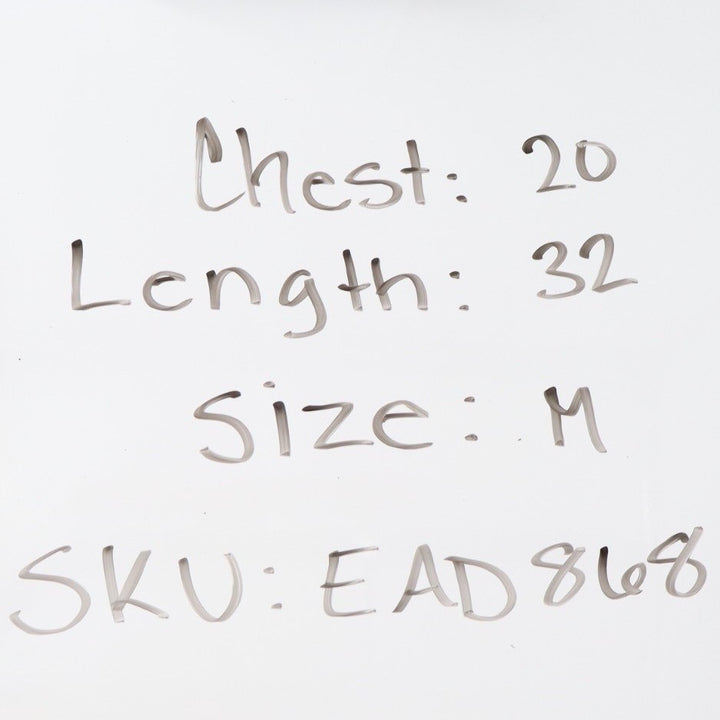 Chest: 20
Length: 32
Size: M
SKU: EAD868